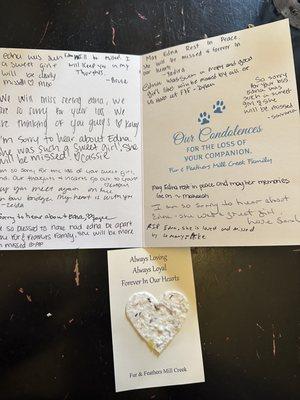 Edna was such
a sweet girl
will be dearly
missed!
I will keep you in my
Thoughts.
We will miss seeing edna, we
are so sorry for your loss, we
are thinking of you guys!
I'm sorry to hear about Edna.
She was such a sweet girl, she
will be missed! Cassie
I'm so sorry for the loss of your sweet girl,
Edna. Our thoughts
you meet again on the
bow bridge. My heart is with you
Sorry to hear about edna,
so blessed to have had edna be apart
the Fur & Feathers Family, she will be more
missed
May Edna Rest In Peace.
She will be missed & forever in
our hearts
Edna was such a happy and great
girl
us here at F&F
So sorry
for your loss
Edna was
such a sweet
girl & she
will be
missed.
Our Condolences
FOR THE LOSS OF
YOUR COMPANION.
Fur & Feathers Mill Creek Family
May Edna rest in peace and may her memories
live on
I am so sorry to hear about
Edna. She was a great girl,
RIP Edna, she is loved and missed
by so many
Always Loving
Always Loyal
Forever In Our Hearts
Fur & Feathers Mill Creek